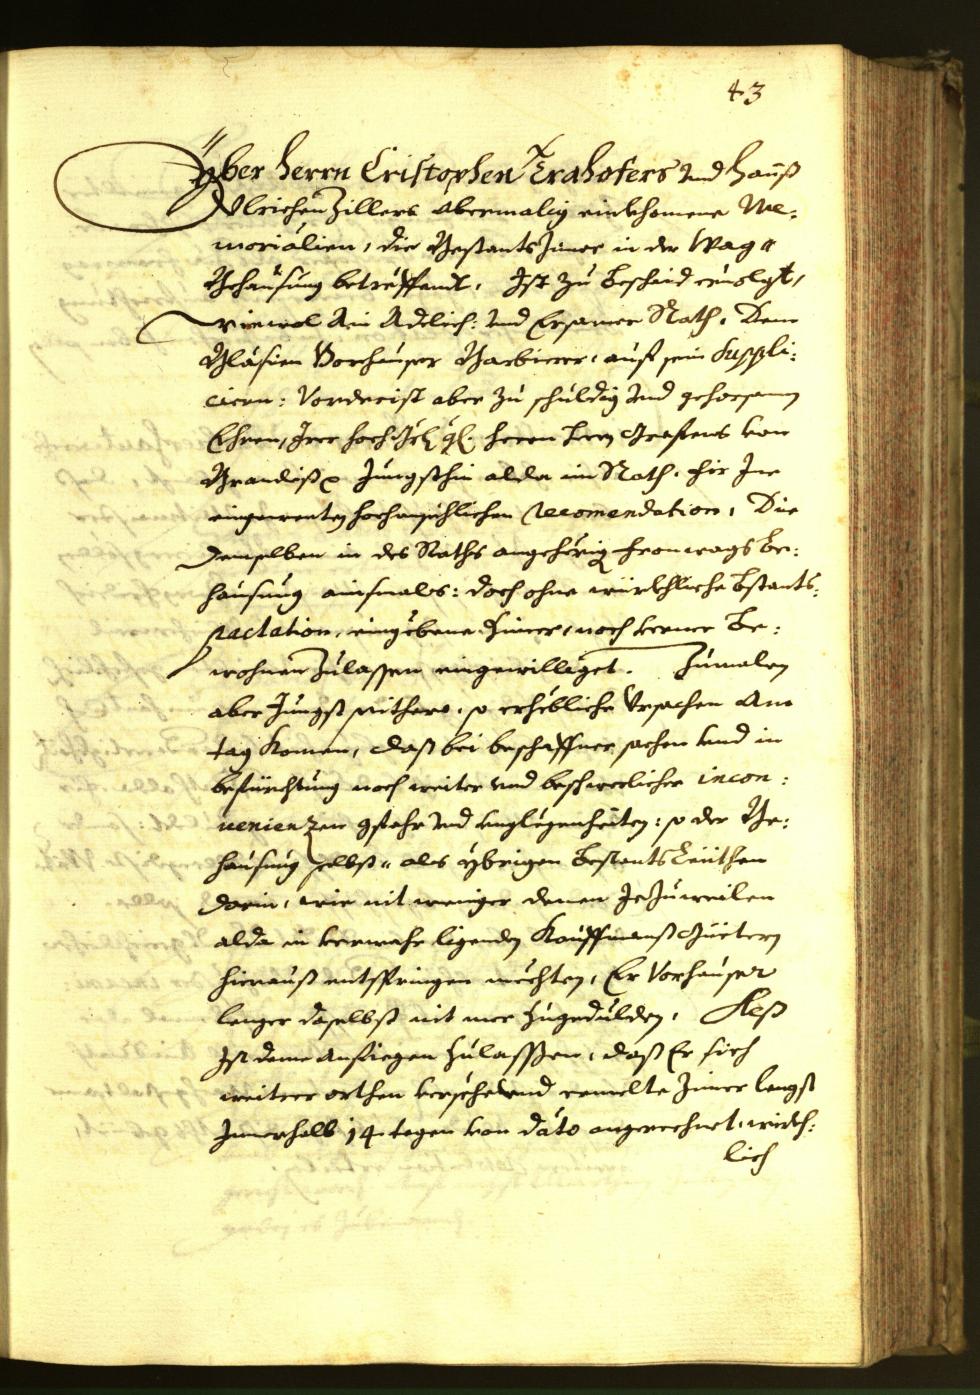 43
Yber Herrn Cristophen Trahofers vnd Hannß
Vlrichen Zillers abermalig einkhomene Me-
morialien, die Bestants Zimer in der Wag-
Behausung betreffendt. Ist zu beschaid ervolgt,
wiewol Ain Adelich: vnd Ersamer Rath, Dem
Bläsien Vorhauser Barbierer, auf sein suppli-
ciern: Vorderist aber zu schuldig vnd gehorsamen
Ehren, Irer hoch herrn Herrn von
Brandiß Jungsthin alda im Rath, für Ine
eingewenten hochansehlichen recomendation, Die
demselben in des Raths angehörig fronwags be-
hausung ainsmals: doch ohne würckhliche bstants-
tractation, eingebene Zimer, noch ferrer be-
wohnen Zulassen eingewilliget. Zumalen
aber Jungst seithero, so erhebliche Vrsachen An
tag komen, daß bei beschaffner sachen vnd in
befürchtung noch weiter vnd beschwerlicher incon-
uenienzen gfahr vnd vnglegenheiten: so der Be-
hausung selbst- als ybrigen bestants Leüthen
darin, wie nit weniger denen Jezuweilen
alda in verwahr ligenden Kauffmanß Güetern
hierauß entspringen mechten, Er Vorhauser
lenger daselbst nit mer Zugedulden,
Ist deme Anfüegen Zulassen, daß Er sich
weiter orthen versehe vnd ermelte Zimer lengst
Innerhalb 14 tagen von dato angerechnet, würckh-
lich